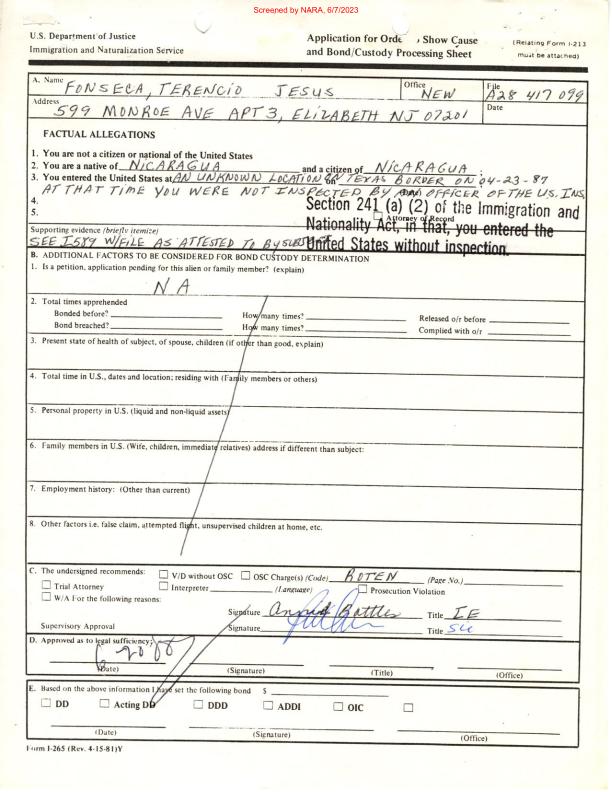 Screened by NARA, 6/7/2023
U.S. Department of Justice
Immigration and Naturalization Service
Application for Order Show Cause
and Bond/Custody Processing Sheet
(Relating Form I-213
must be attached)
A. Name FONSECA, TERENCIO JESUS
Office NEW
File A28 417 099
Address 599 MONROE AVE APT 3, ELIZABETH NJ 07201
Date
FACTUAL ALLEGATIONS
1. You are not a citizen or national of the United States
2. You are a native of NICARAGUA and a citizen of NICARAGUA.
3. You entered the United States at AN UNKNOWN LOCATION ON TEXAS BORDER ON 04-23-87
AT THAT TIME YOU WERE NOT INSPECTED BY AN OFFICER OF THE U.S. INS
4.
5.
Section 241 (a) (2) of the Immigration and
Nationality Act, in that, you entered the
United States without inspection.
Attorney of Record
Supporting evidence (briefly itemize)
SEE I589 W/FILE AS ATTESTED TO BY
B. ADDITIONAL FACTORS TO BE CONSIDERED FOR BOND CUSTODY DETERMINATION
1. Is a petition, application pending for this alien or family member? (explain)
NA
2. Total times apprehended
Bonded before? How many times? Released o/r before
Bond breached? How many times? Complied with o/r
3. Present state of health of subject, of spouse, children (if other than good, explain)
4. Total time in U.S., dates and location; residing with (Family members or others)
5. Personal property in U.S. (liquid and non-liquid assets)
6. Family members in U.S. (Wife, children, immediate relatives) address if different than subject:
7. Employment history: (Other than current)
8. Other factors i.e. false claim, attempted flight, unsupervised children at home, etc.
C. The undersigned recommends: V/D without OSC OSC Charge(s) (Code) ROTEN (Page No.)
Trial Attorney Interpreter (Language) Prosecution Violation
W/A For the following reasons:
Signature Battles Title IE
Supervisory Approval Signature Title
D. Approved as to legal sufficiency;
(Date) (Signature) (Title) (Office)
E. Based on the above information I have set the following bond $
DD Acting DD DDD ADDI OIC
(Date) (Signature) (Office)
Form I-265 (Rev. 4-15-81)Y